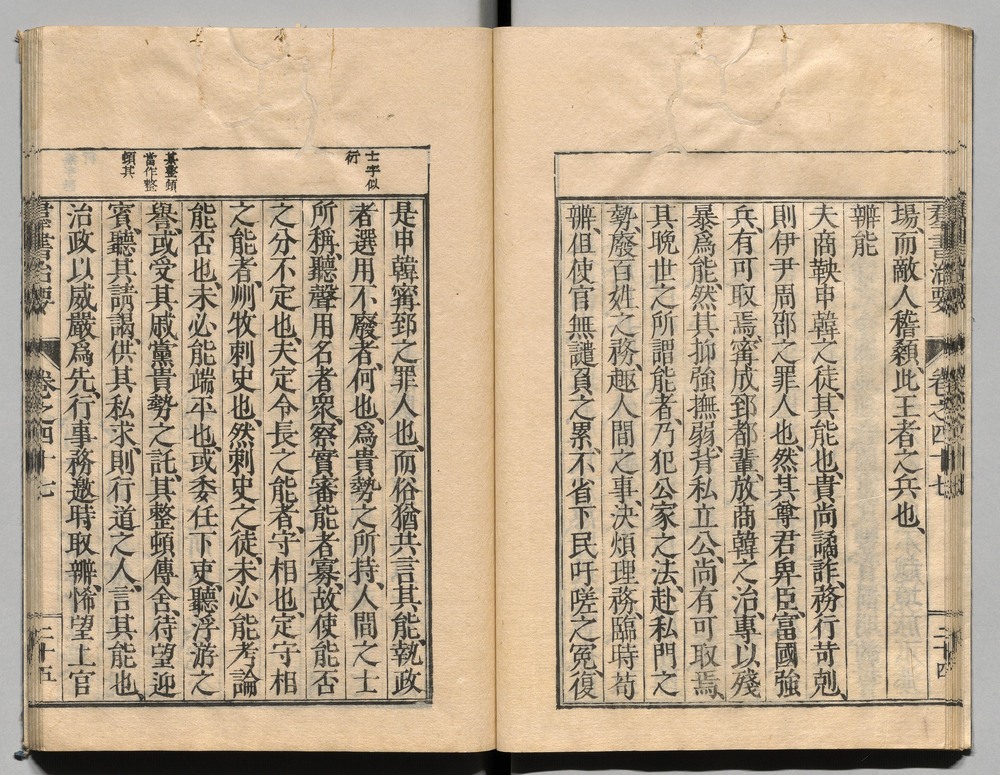 群書治要 卷之四十七 二十四
場、而敵人稽顙、此王者之兵也、
辨能
夫商鞅申韓之徒、其能也、貴尚譎詐、務行苛剋、
則伊尹周邵之罪人也、然其尊君卑臣、富國強
兵、有可取焉、甯成郅都輩、放商韓之治、專以殘
暴爲能、然其抑強撫弱、背私立公、尚有可取焉、
其晚世之所謂能者、乃犯公家之法、赴私門之
勢、廢百姓之務、趣人間之事、決煩理務、臨時苟
辨、但使官無譴負之累、不省下民吁嗟之冤、復
士字似
衍
是申韓甯郅之罪人也、而俗猶共言其能、執政
者選用不廢者、何也、爲貴勢之所持、人間之士
所稱、聽聲用名者眾、察實審能者寡、故使能否
之分不定也、夫定令長之能者、守相也、定守相
之能者、州牧刺史也、然刺史之徒、未必能考論
能否也、未必能端平也、或委任下吏、聽浮游之
綦整頓
當作整
頓其
譽、或受其戚黨貴勢之託、其整頓傳舍、待望迎
賓、聽其請謁、供其私求、則行道之人、言其能也、
治政以威嚴爲先、行事務邀時取辨、悕望上官
群書治要 卷之四十七 二十五